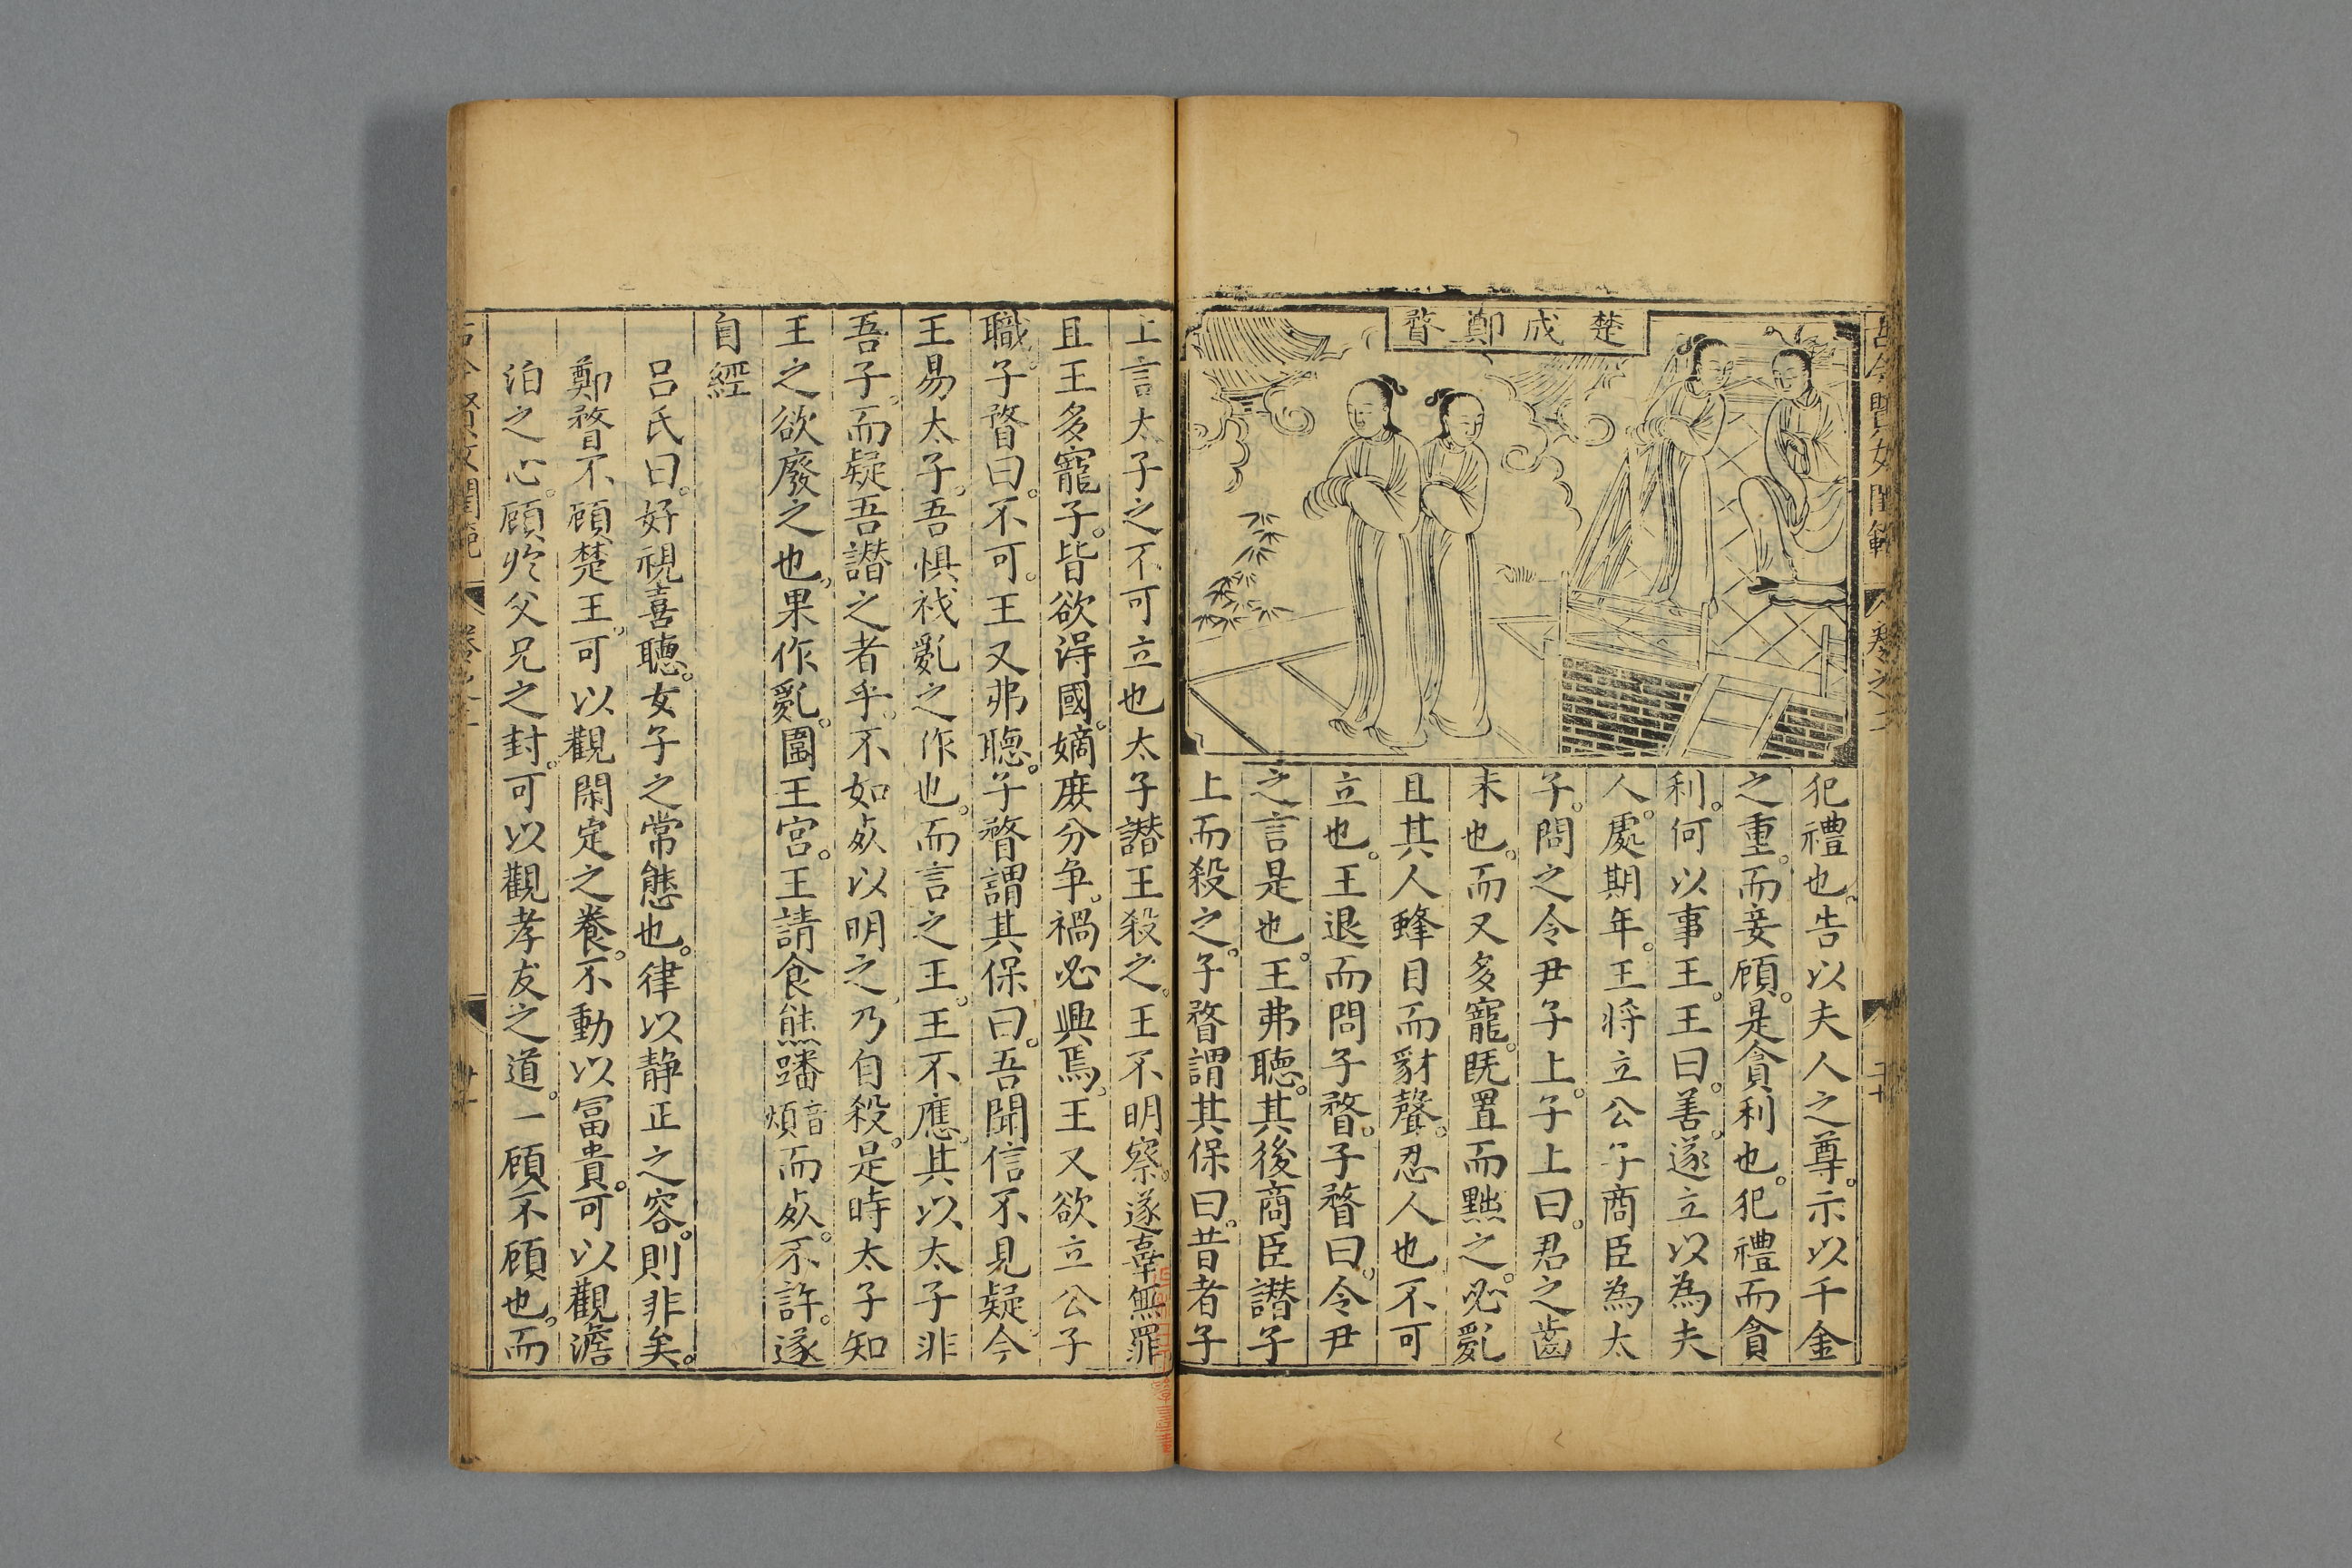 古今賢女閨範
卷之二
二十
楚成鄭瞀
犯禮也。告以夫人之尊。示以千金
之重。而妾顧。是貪利也。犯禮而貪
利。何以事王。王曰。善。遂立以為夫
人。處期年。王将立公子商臣為太
子。問之令尹子上。子上曰。君之齒
未也。而又多寵。旣置而黜之。必亂
且其人蜂目而豺聲。忍人也。不可
立也。王退而問子瞀。子瞀曰。令尹
之言是也。王弗聽。其後商臣譖子
上而殺之。子瞀謂其保曰。昔者子
上言太子之不可立也太子譖王殺之。王不明察。遂辜無罪
且王多寵子。皆欲得國。嫡庶分争。禍必興焉。王又欲立公子
職。子瞀曰。不可。王又弗聽。子瞀謂其保曰。吾聞信不見疑今
王易太子。吾惧禍亂之作也。而言之王。王不應。其以太子非
吾子。而疑吾譖之者乎。不如死以明之。乃自殺。是時太子知
王之欲廢之也。果作亂。圍王宮。王請食熊蹯音煩而死。不許。遂
自經
呂氏曰。好視喜聽。女子之常態也。律以静正之容。則非矣。
鄭瞀不顧楚王。可以觀閑定之養。不動以冨貴。可以觀澹
泊之心。顧於父兄之封。可以觀孝友之道。一顧不顧也。而
古今賢女閨範
卷之二